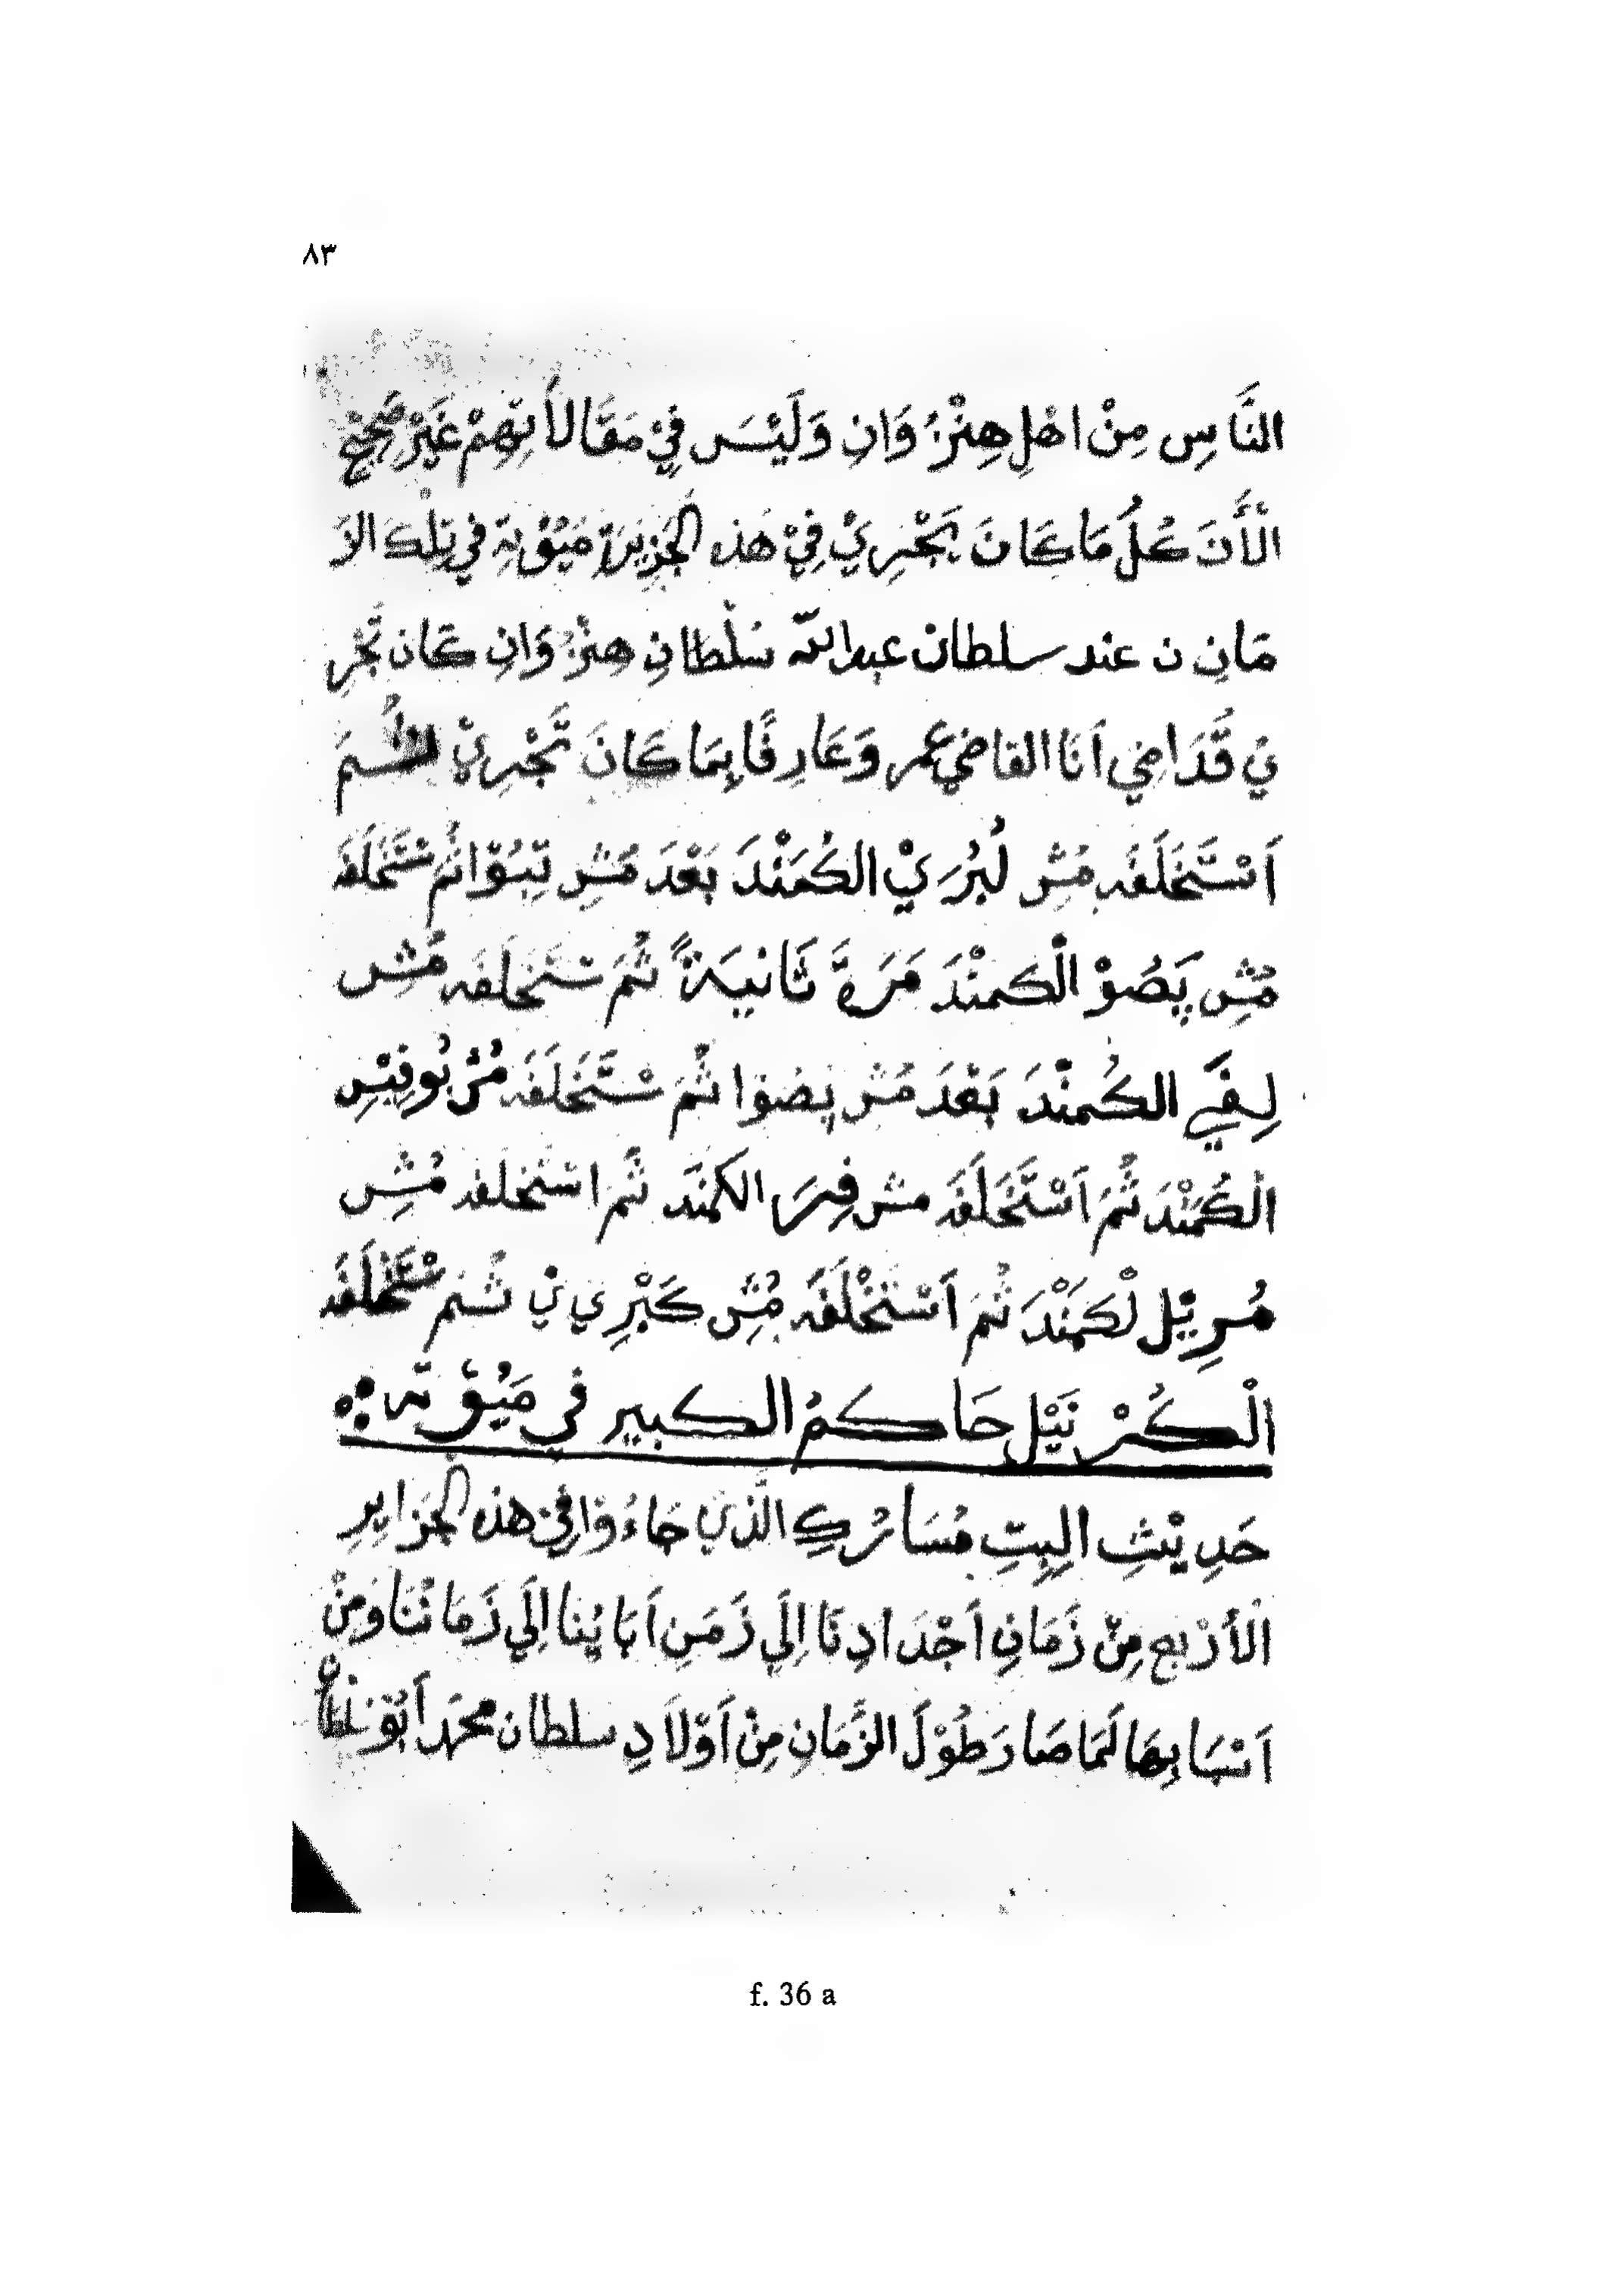 ٨٣
النَّاسِ مِنْ اهْلِ هِنْزُ وَانِ وَلَيْسَ فِيْ مَقَالاَتِهِمْ غَيْرْ صَحِيْح
الْأَنَ كُلُ مَا كَانَ يَجْرِيْ فِيْ هَذه الجَزِيْرَة مَيُوْتَةِ فِي تِلْكَ الاَزَ
مَانِ ن عند سلطان عبد الله سُلْطانِ هِنْزُوَانِ كَان تَجْرِ
يْ قُدَامِي اَنَا القاضي عمر وَعَارِفًا بِمَا كَانَ تَجْرِيْ ثُمَ
اَسْتَخْلَفَه مُشِ لُبُرَيْ الكُمَنْدَ بَعْدَ مُشِ تِبُوْا ثُمَ سْتَخْلَفَه
مُشِ پَصُوْ الْكمنْدَ مَرَةً ثَانيَةً ثُمَ سْتَخلَفَه مُشِ
لِفَيِ الكُمنْدَ بَعْدَ مُشِ پَصُوْا ثُمَ سْتَخْلَفَه مُشِ بُوفِيْسِ
الْكُمَنْدَ ثُمَ اَسْتَخْلَفَه مش فِرَ الكمنَد ثُمَ اسْتَخلفه مُشِ
مُرِيْل لْكمَنْدَ ثُمَ اَسْتَخْلَفَه مُشِ كَبْرِي يْ ثُم سْتَخْلَفَه
الْكُرْنَيْل حَاكمُ الكبير في مَيُوْتَه
حَدِيْثِ البِيتِ مُسَارُكِ الَّذيْ جَاءُوْا فِيْ هذه الجَزَايِرِ
الأرْبع مِنْ زَمَانِ اَجْدَادِنَا اِلَي زَمَنِ اَبَايُنا اِلَي زَمَانْنَا وَمِنْ
اَنْسَابِهَا لَمَا صَارَ طُوْلَ الزَّمَانِ مِنْ اَوْلاَدِ سلطان محمَد اَبُوْ سُلْطان
f. 36 a